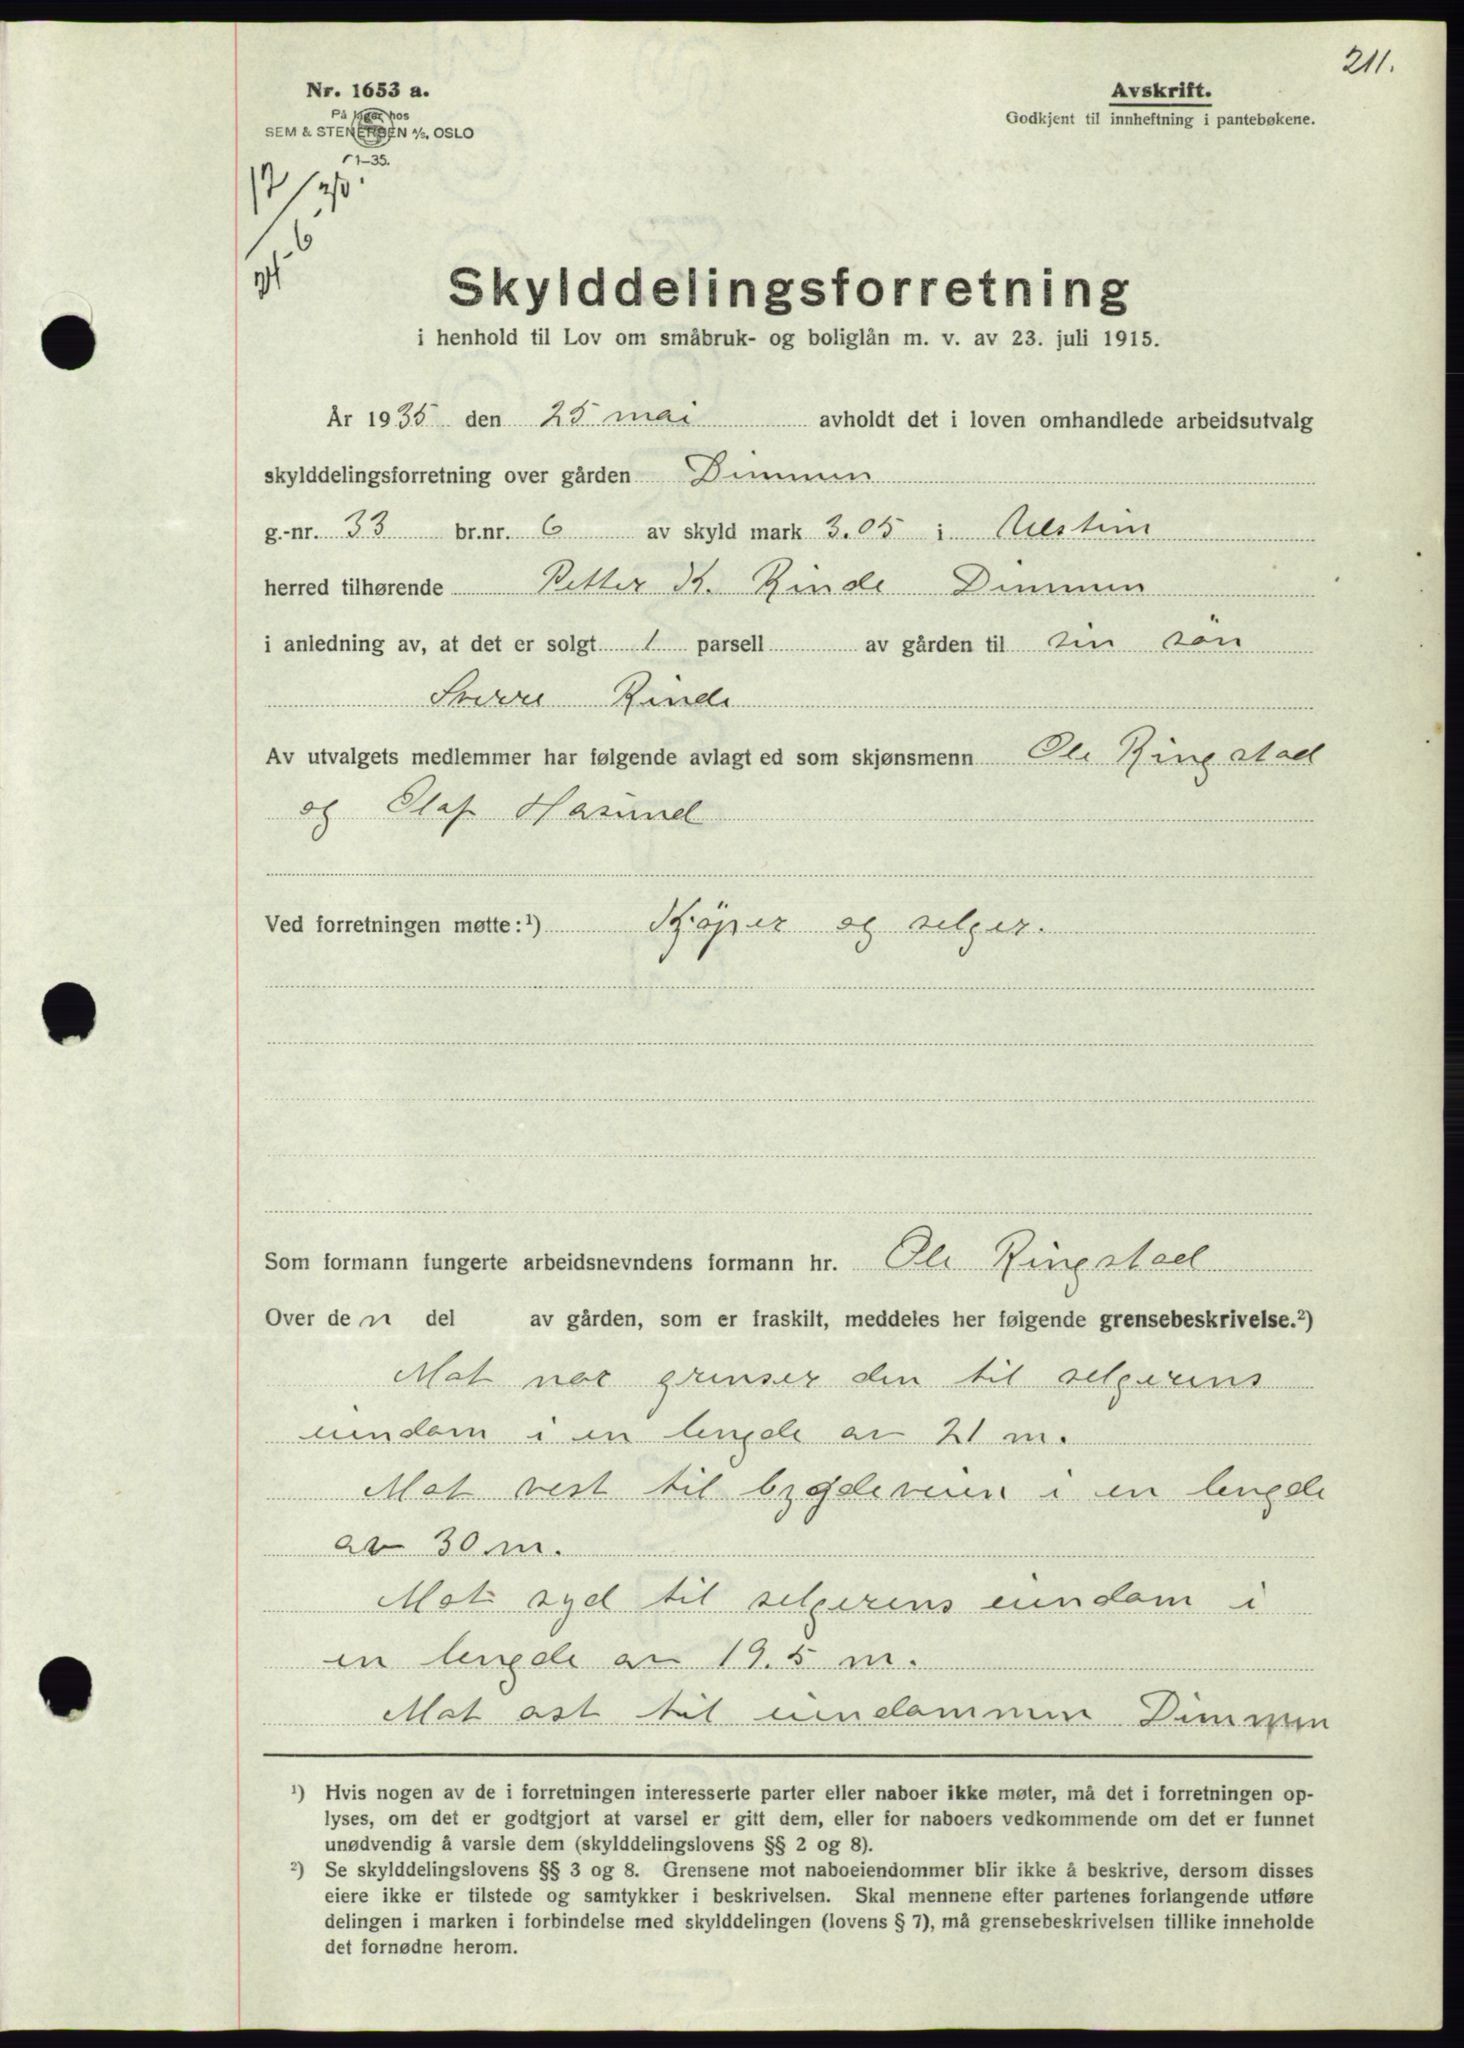 211.
Nr. 1653 a.
På lager hos
SEM & STENERSEN A/S. OSLO
1-35.
Avskrift.
Godkjent til innheftning i pantebøkene.
Skylddelingsforretning
i henhold til Lov om småbruk- og boliglån m. v. av 23. juli 1915.
År 1935 den 25 mai avholdt det i loven omhandlede arbeidsutvalg
skylddelingsforretning over gården Dimmen
g.-nr. 33 br.nr. 6 av skyld mark 3.05 i Ulstein
herred tilhørende Petter K. Rinde Dimmen
i anledning av, at det er solgt 1 parsell av gården til sin sön
Sverre Rinde
Av utvalgets medlemmer har følgende avlagt ed som skjønsmenn Ole Ringstad
og Olaf Hasund
Ved forretningen møtte:¹) Kjöper og selger.
Som formann fungerte arbeidsnevndens formann hr. Ole Ringstad
Over den del av gården, som er fraskilt, meddeles her følgende grensebeskrivelse.²)
Mot nor grenser den til selgerens
eiendom i en lengde av 21 m.
Mot vest til bygdeveien i en lengde
av 30 m.
Mot syd til selgerens eiendom i
en lengde av 19.5 m.
Mot øst til eiendommen Dimmen
¹) Hvis nogen av de i forretningen interesserte parter eller naboer ikke møter, må det i forretningen op-
lyses, om det er godtgjort at varsel er gitt dem, eller for naboers vedkommende om det er funnet
unødvendig å varsle dem (skylddelingslovens §§ 2 og 8).
²) Se skylddelingslovens §§ 3 og 8. Grensene mot naboeiendommer blir ikke å beskrive, dersom disses
eiere ikke er tilstede og samtykker i beskrivelsen. Skal mennene efter partenes forlangende utføre
delingen i marken i forbindelse med skylddelingen (lovens § 7), må grensebeskrivelsen tillike inneholde
det fornødne herom.